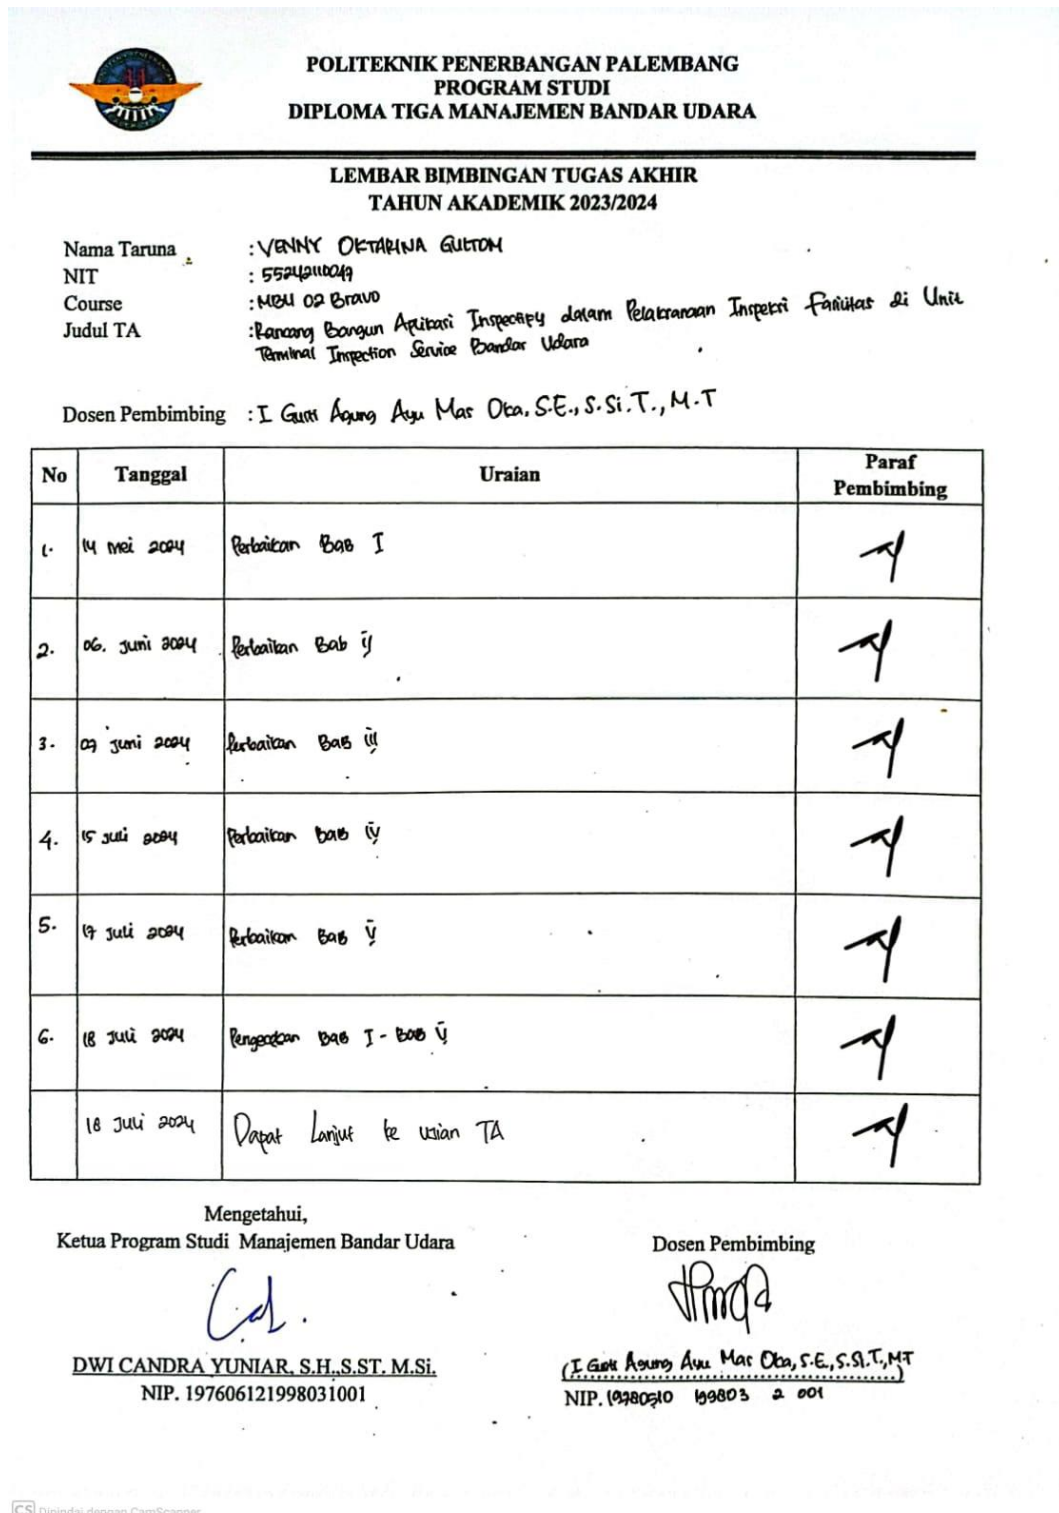 POLITEKNIK PENERBANGAN PALEMBANG
PROGRAM STUDI
DIPLOMA TIGA MANAJEMEN BANDAR UDARA
LEMBAR BIMBINGAN TUGAS AKHIR
TAHUN AKADEMIK 2023/2024
Nama Taruna : VENNY OKTARINA GULTOM
NIT : 55242110049
Course : MBU 02 Bravo
Judul TA : Rancang Bangun Aplikasi Inspectipy dalam Pelaksanaan Inspeksi Fasilitas di Unit
Terminal Inspection Service Bandar Udara
Dosen Pembimbing : I Gusti Agung Ayu Mas Oka, S.E., S.Si.T., M.T
No Tanggal Uraian Paraf Pembimbing
1. 14 Mei 2024 Perbaikan Bab I
2. 06. Juni 2024 Perbaikan Bab II
3. 07 Juni 2024 Perbaikan Bab III
4. 15 Juli 2024 Perbaikan Bab IV
5. 17 Juli 2024 Perbaikan Bab V
6. 18 Juli 2024 Pengecekan Bab I - Bab V
18 Juli 2024 Dapat Lanjut ke ujian TA
Mengetahui,
Ketua Program Studi Manajemen Bandar Udara
Dosen Pembimbing
DWI CANDRA YUNIAR, S.H.,S.ST. M.Si.
NIP. 197606121998031001
(I Gusti Agung Ayu Mas Oka, S.E., S.Si.T., M.T)
NIP. 19780510 199803 2 001
CS Dipindai dengan CamScanner